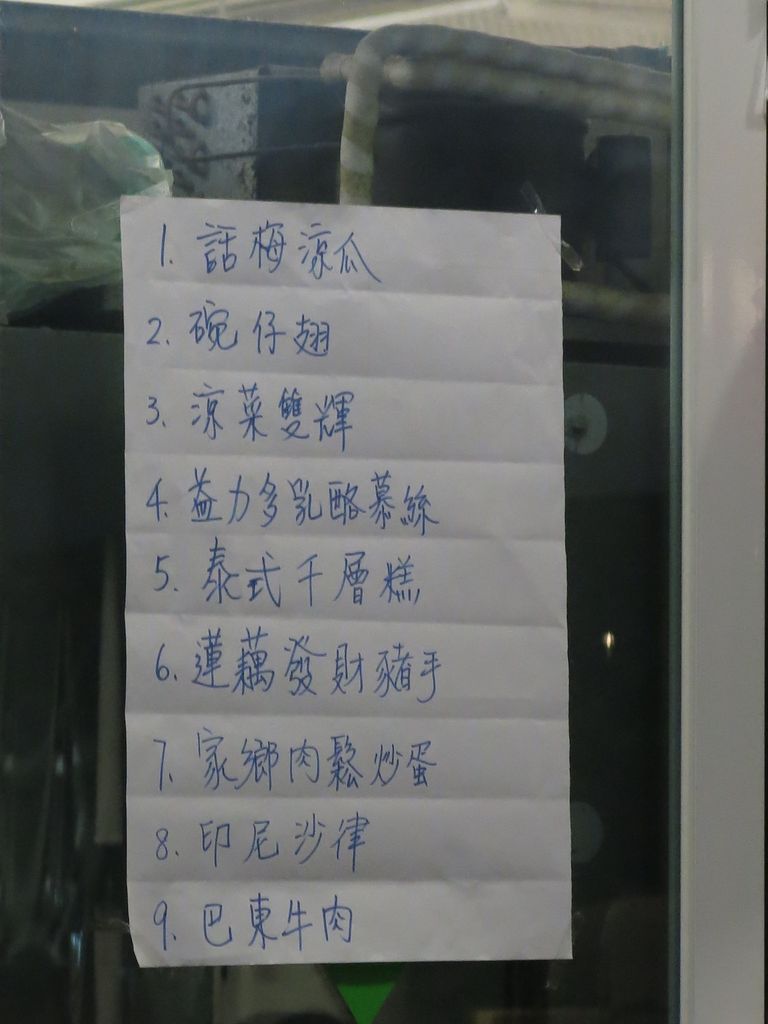 1. 話梅涼瓜
2. 碗仔翅
3. 涼菜雙輝
4. 益力多乳酪慕絲
5. 泰式千層糕
6. 蓮藕發財豬手
7. 家鄉肉鬆炒蛋
8. 印尼沙律
9. 巴東牛肉